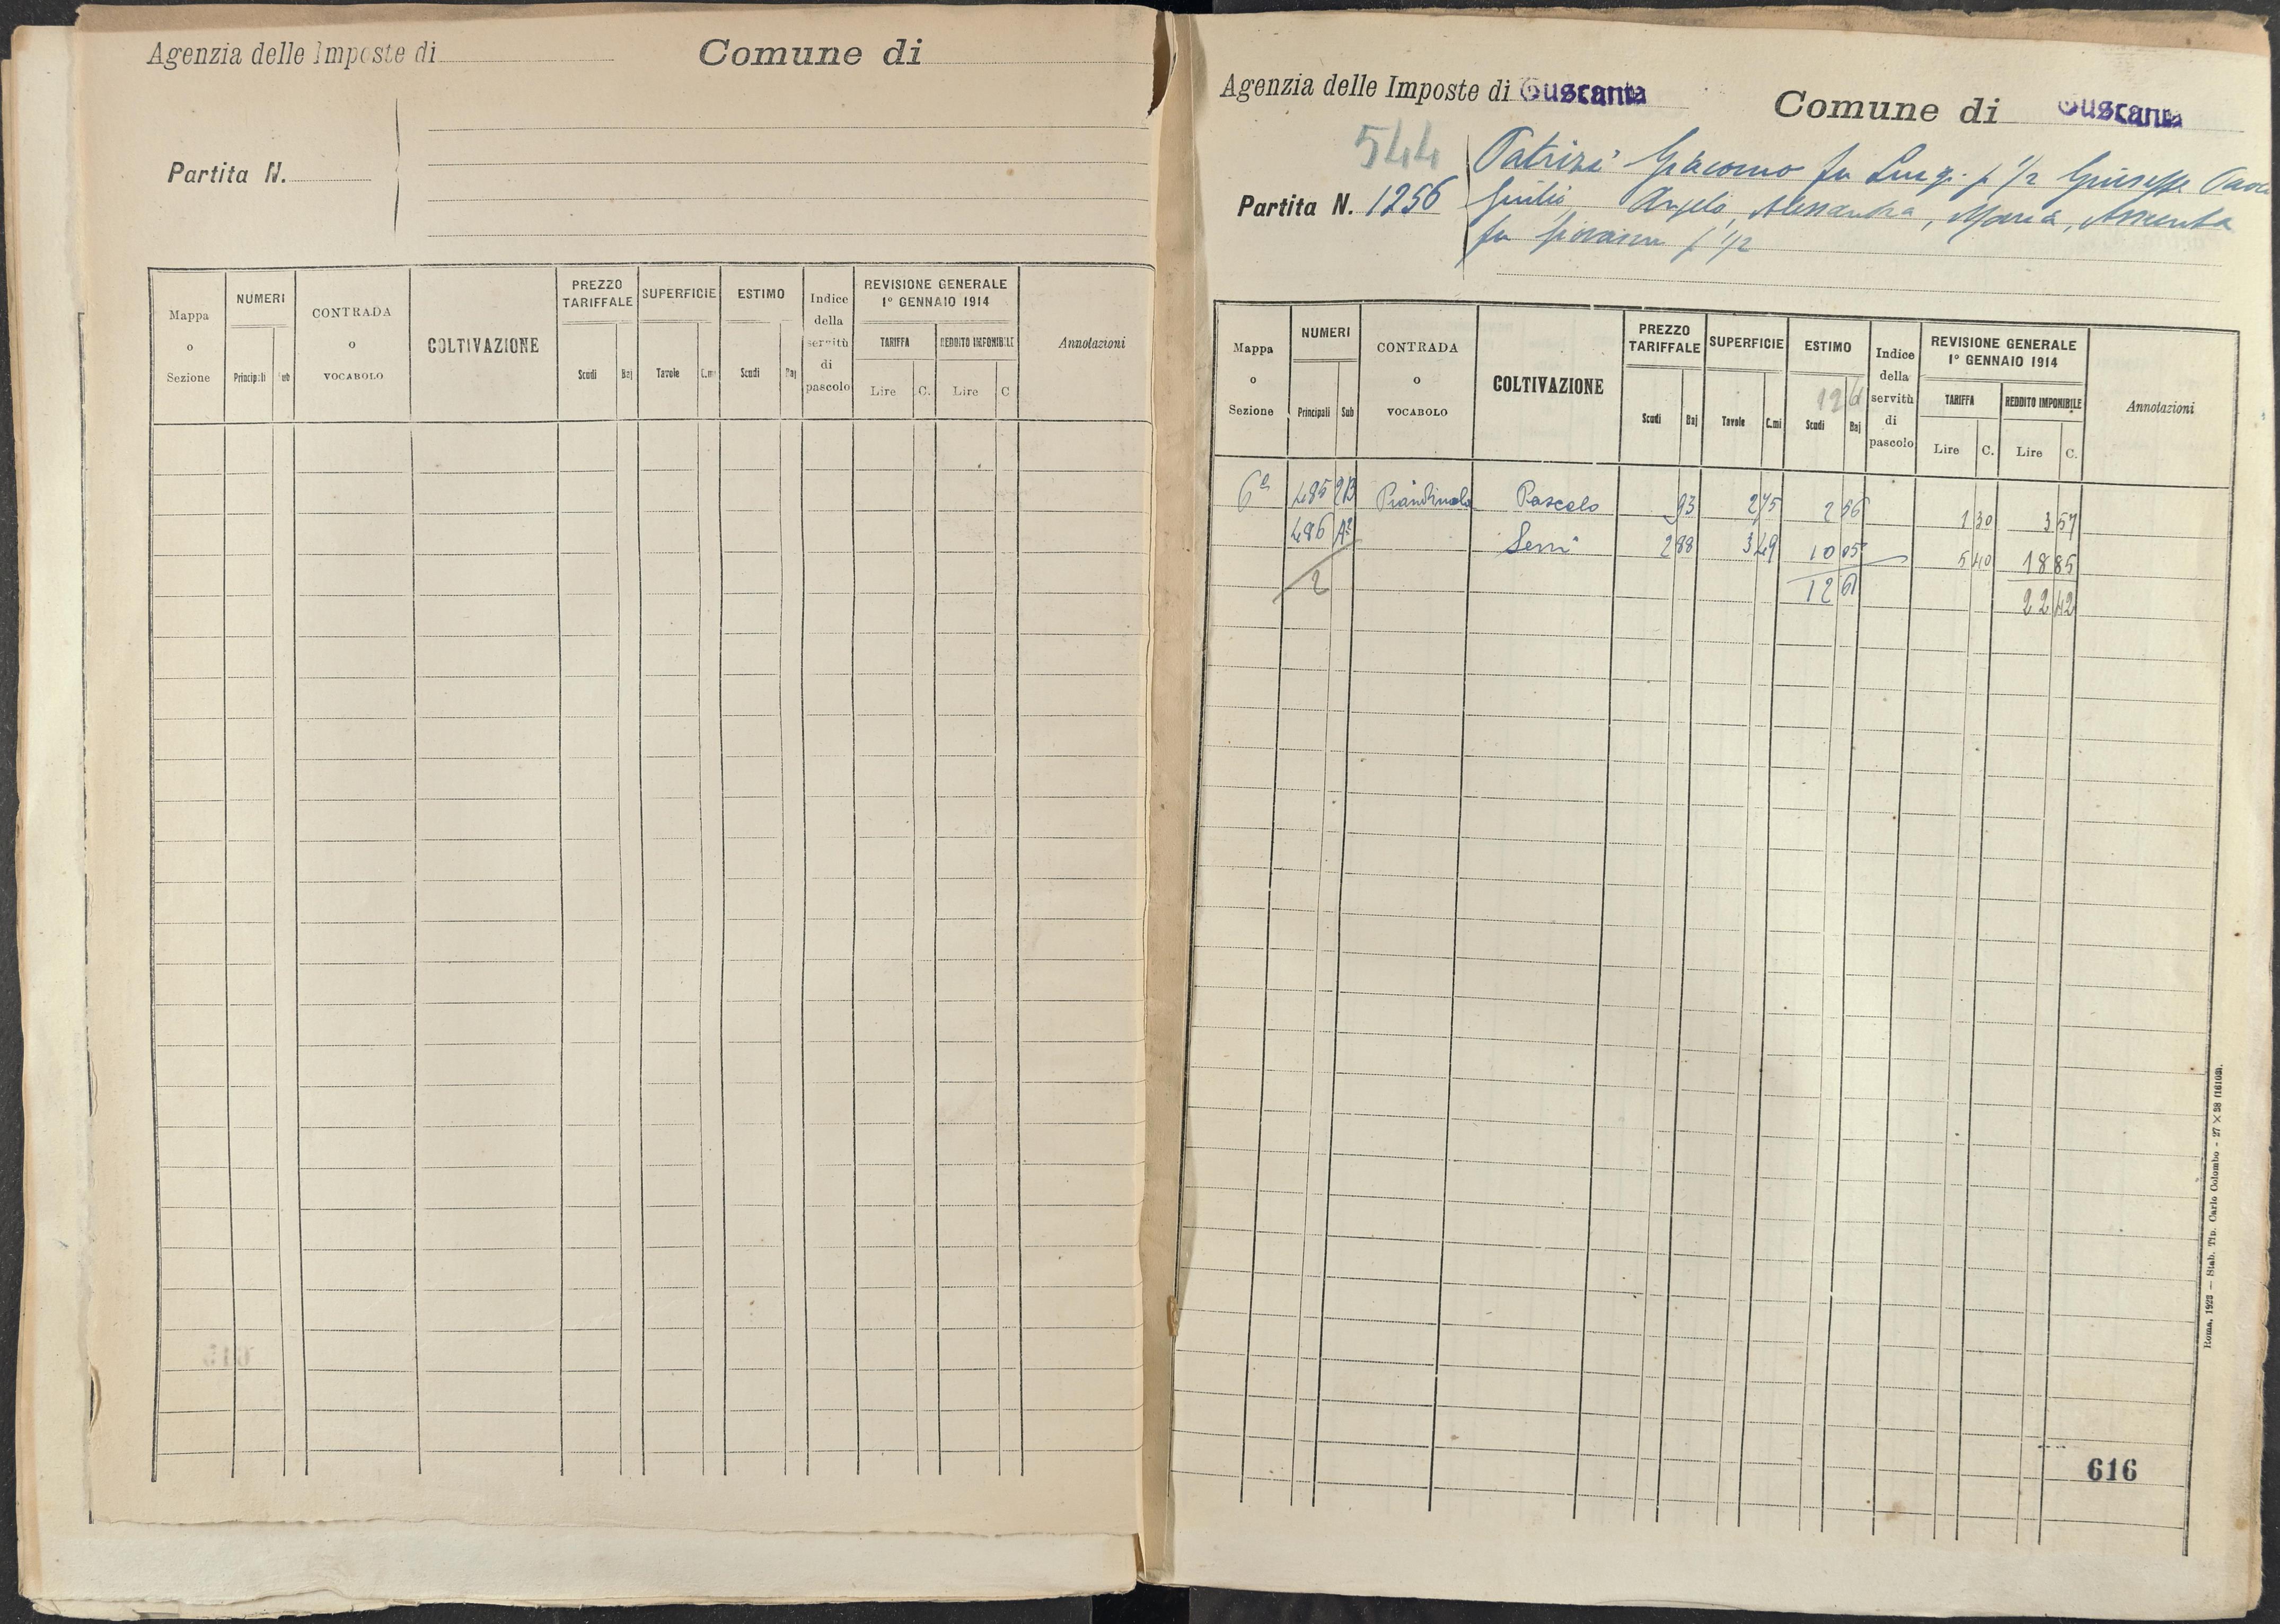 Agenzia delle Imposte di
Comune di
Partita N.
Mappa o Sezione
NUMERI
Principali
Sub
CONTRADA o VOCABOLO
COLTIVAZIONE
PREZZO TARIFFALE
Scudi
Baj
SUPERFICIE
Tavole
C.mi
ESTIMO
Scudi
Baj
Indice della servitù di pascolo
REVISIONE GENERALE
1° GENNAIO 1914
TARIFFA
REDDITO IMPONIBILE
Lire C. Lire C
Annotazioni
Agenzia delle Imposte di Tuscania
Comune di Tuscania
544
Partita N. 1256
Patrizi Giacomo fu Luigi p 1/2 Giuseppe
Giulio, Angelo, Alessandra, Maria, Assunta
fu Giovanni p 1/2
Mappa o Sezione
NUMERI
Principali
Sub
CONTRADA o VOCABOLO
COLTIVAZIONE
PREZZO TARIFFALE
Scudi
Baj
SUPERFICIE
Tavole
C.mi
ESTIMO
12 61
Scudi
Baj
Indice della servitù di pascolo
REVISIONE GENERALE
1° GENNAIO 1914
TARIFFA
REDDITO IMPONIBILE
Lire C. Lire C.
Annotazioni
6a 485 2B Pascolo 93 2 75 2 56 1 30 3 57
486 A2 Semi 2 88 3 49 10 05 5 40 18 85
2 12 61 22 42
Roma, 1923 — Stab. Tip. Carlo Colombo - 27 X 38
616